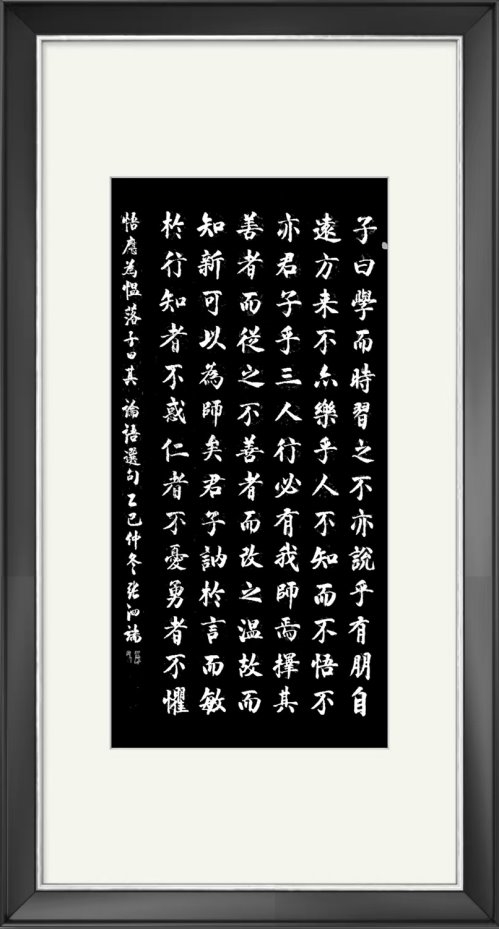 子曰學而時習之不亦說乎有朋自
遠方来不亦樂乎人不知而不悟不
亦君子乎三人行必有我師焉擇其
善者而從之不善者而改之温故而
知新可以為師矣君子訥於言而敏
於行知者不惑仁者不憂勇者不懼
悟應為愠落子曰其 論語選句 乙巳仲冬張泗